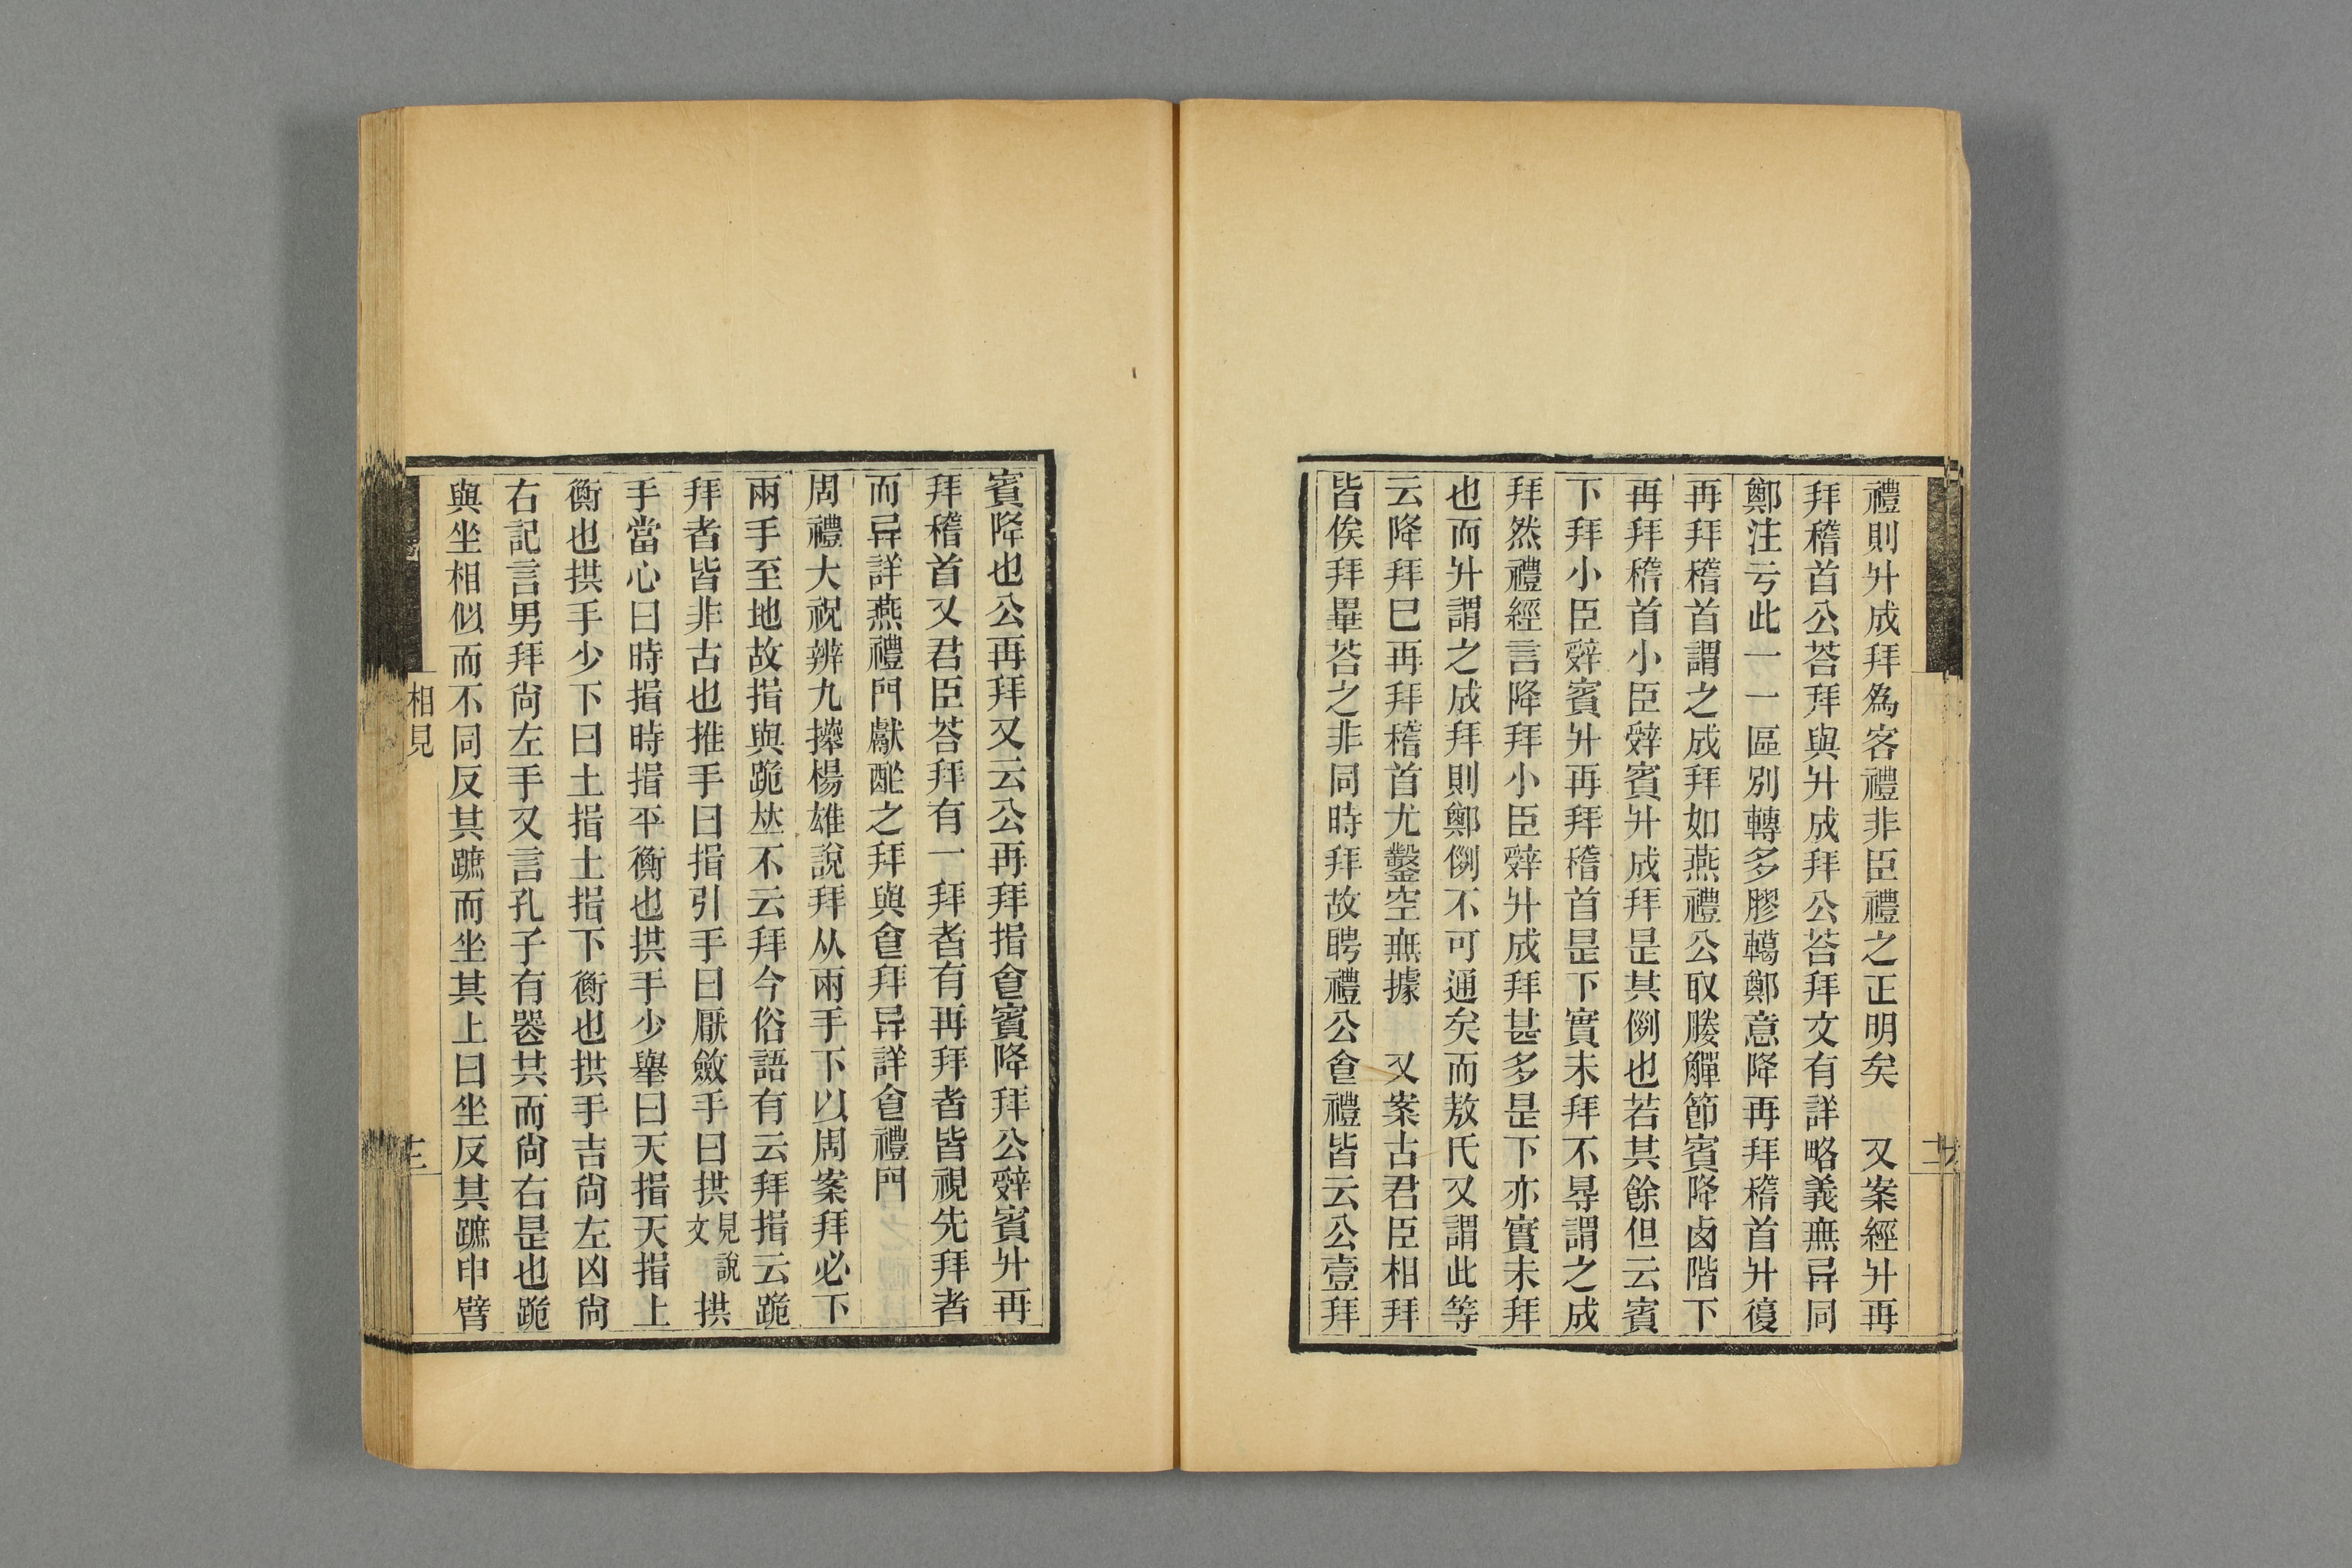 禮則升成拜為客禮非臣禮之正明矣　又案經升再
拜稽首公荅拜與升成拜公荅拜文有詳略義無异同
鄭注亏此一一區別轉多膠轕鄭意降再拜稽首升復
再拜稽首謂之成拜如燕禮公取媵觶節賓降卤階下
再拜稽首小臣辤賓升成拜是其例也若其餘但云賓
下拜小臣辤賓升再拜稽首是下實未拜不得謂之成
拜然禮經言降拜小臣辤升成拜甚多是下亦實未拜
也而升謂之成拜則鄭例不可通矣而敖氏又謂此等
云降拜巳再拜稽首尤鑿空無據　又案古君臣相拜
皆俟拜畢荅之非同時拜故聘禮公食禮皆云公壹拜
賓降也公再拜又云公再拜揖食賓降拜公辤賓升再
拜稽首又君臣荅拜有一拜者有再拜者皆視先拜者
而异詳燕禮門獻酢之拜與食拜异詳食禮門
周禮大祝辨九𢷎楊雄說拜从兩手下以周案拜必下
兩手至地故揖與跪𠀤不云拜今俗語有云拜揖云跪
拜者皆非古也推手曰揖引手曰厭斂手曰拱見說文拱
手當心曰時揖時揖平衡也拱手少舉曰天揖天揖上
衡也拱手少下曰土揖土揖下衡也拱手吉尙左凶尙
右記言男拜尙左手又言孔子有器其而尙右是也跪
與坐相似而不同反其蹠而坐其上曰坐反其蹠申臂
相見
三